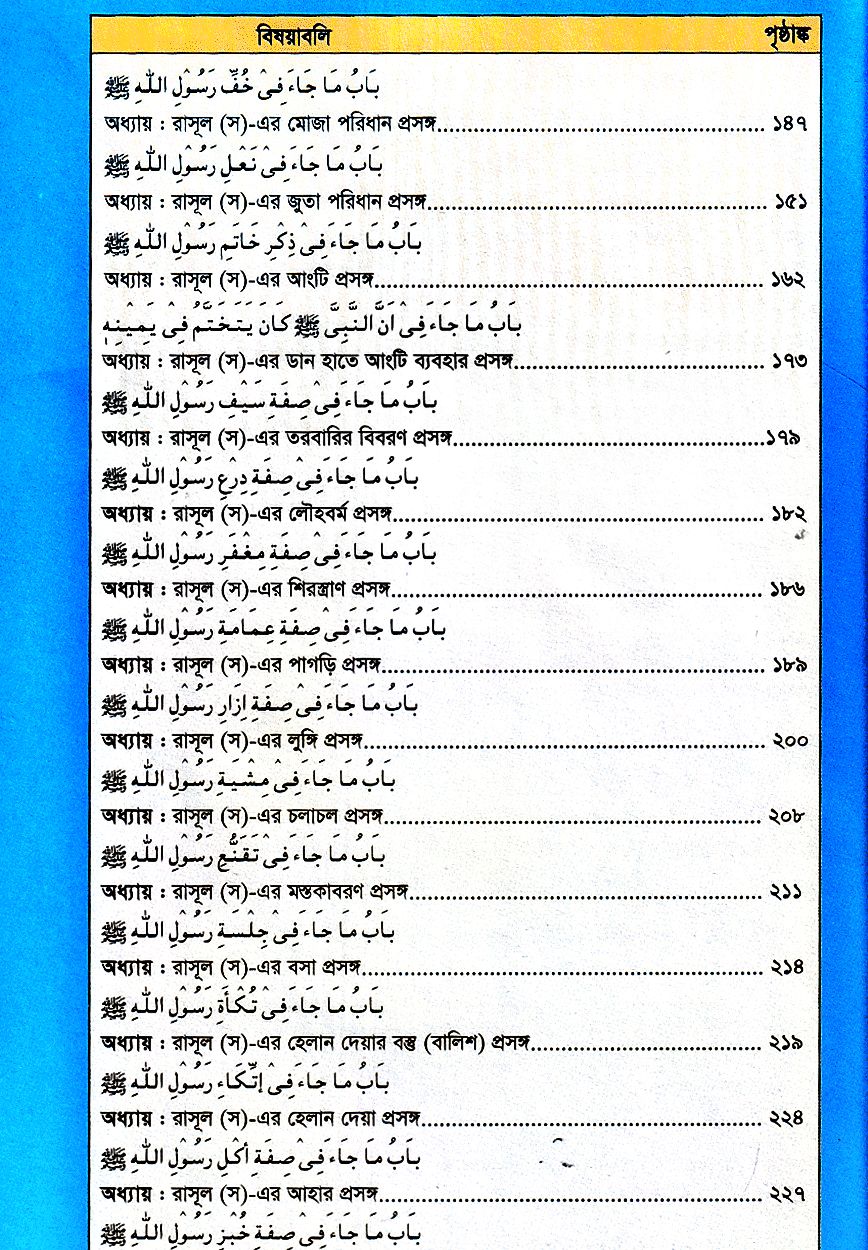 বিষয়াবলি পৃষ্ঠাঙ্ক
بَابُ مَا جَاءَ فِىْ خُفِّ رَسُوْلِ اللهِ ﷺ
অধ্যায় : রাসূল (স)-এর মোজা পরিধান প্রসঙ্গ........................................................ ১৪৭
بَابُ مَا جَاءَ فِىْ نَعْلِ رَسُوْلِ اللهِ ﷺ
অধ্যায় : রাসূল (স)-এর জুতা পরিধান প্রসঙ্গ......................................................... ১৫১
بَابُ مَا جَاءَ فِىْ ذِكْرِ خَاتَمِ رَسُوْلِ اللهِ ﷺ
অধ্যায় : রাসূল (স)-এর আংটি প্রসঙ্গ................................................................. ১৬২
بَابُ مَا جَاءَ فِىْ اَنَّ النَّبِىَّ ﷺ كَانَ يَتَخَتَّمُ فِىْ يَمِيْنِهٖ
অধ্যায় : রাসূল (স)-এর ডান হাতে আংটি ব্যবহার প্রসঙ্গ.......................................... ১৭৩
بَابُ مَا جَاءَ فِىْ صِفَةِ سَيْفِ رَسُوْلِ اللهِ ﷺ
অধ্যায় : রাসূল (স)-এর তরবারির বিবরণ প্রসঙ্গ....................................................১৭৯
بَابُ مَا جَاءَ فِىْ صِفَةِ دِرْعِ رَسُوْلِ اللهِ ﷺ
অধ্যায় : রাসূল (স)-এর লৌহবর্ম প্রসঙ্গ.............................................................. ১৮২
بَابُ مَا جَاءَ فِىْ صِفَةِ مِغْفَرِ رَسُوْلِ اللهِ ﷺ
অধ্যায় : রাসূল (স)-এর শিরস্ত্রাণ প্রসঙ্গ.............................................................. ১৮৬
بَابُ مَا جَاءَ فِىْ صِفَةِ عِمَامَةِ رَسُوْلِ اللهِ ﷺ
অধ্যায় : রাসূল (স)-এর পাগড়ি প্রসঙ্গ................................................................ ১৮৯
بَابُ مَا جَاءَ فِىْ صِفَةِ اِزَارِ رَسُوْلِ اللهِ ﷺ
অধ্যায় : রাসূল (স)-এর লুঙ্গি প্রসঙ্গ................................................................... ২০০
بَابُ مَا جَاءَ فِىْ مِشْيَةِ رَسُوْلِ اللهِ ﷺ
অধ্যায় : রাসূল (স)-এর চলাচল প্রসঙ্গ............................................................... ২০৮
بَابُ مَا جَاءَ فِىْ تَقَنُّعِ رَسُوْلِ اللهِ ﷺ
অধ্যায় : রাসূল (স)-এর মস্তকাবরণ প্রসঙ্গ........................................................... ২১১
بَابُ مَا جَاءَ فِىْ جِلْسَةِ رَسُوْلِ اللهِ ﷺ
অধ্যায় : রাসূল (স)-এর বসা প্রসঙ্গ................................................................... ২১৪
بَابُ مَا جَاءَ فِىْ تُكْأَةِ رَسُوْلِ اللهِ ﷺ
অধ্যায় : রাসূল (স)-এর হেলান দেয়ার বস্তু (বালিশ) প্রসঙ্গ....................................... ২১৯
بَابُ مَا جَاءَ فِىْ إتِّكَاءِ رَسُوْلِ اللهِ ﷺ
অধ্যায় : রাসূল (স)-এর হেলান দেয়া প্রসঙ্গ.......................................................... ২২৪
بَابُ مَا جَاءَ فِىْ صِفَةِ أكْلِ رَسُوْلِ اللهِ ﷺ
অধ্যায় : রাসূল (স)-এর আহার প্রসঙ্গ................................................................ ২২৭
بَابُ مَا جَاءَ فِىْ صِفَةِ خُبْزِ رَسُوْلِ اللهِ ﷺ